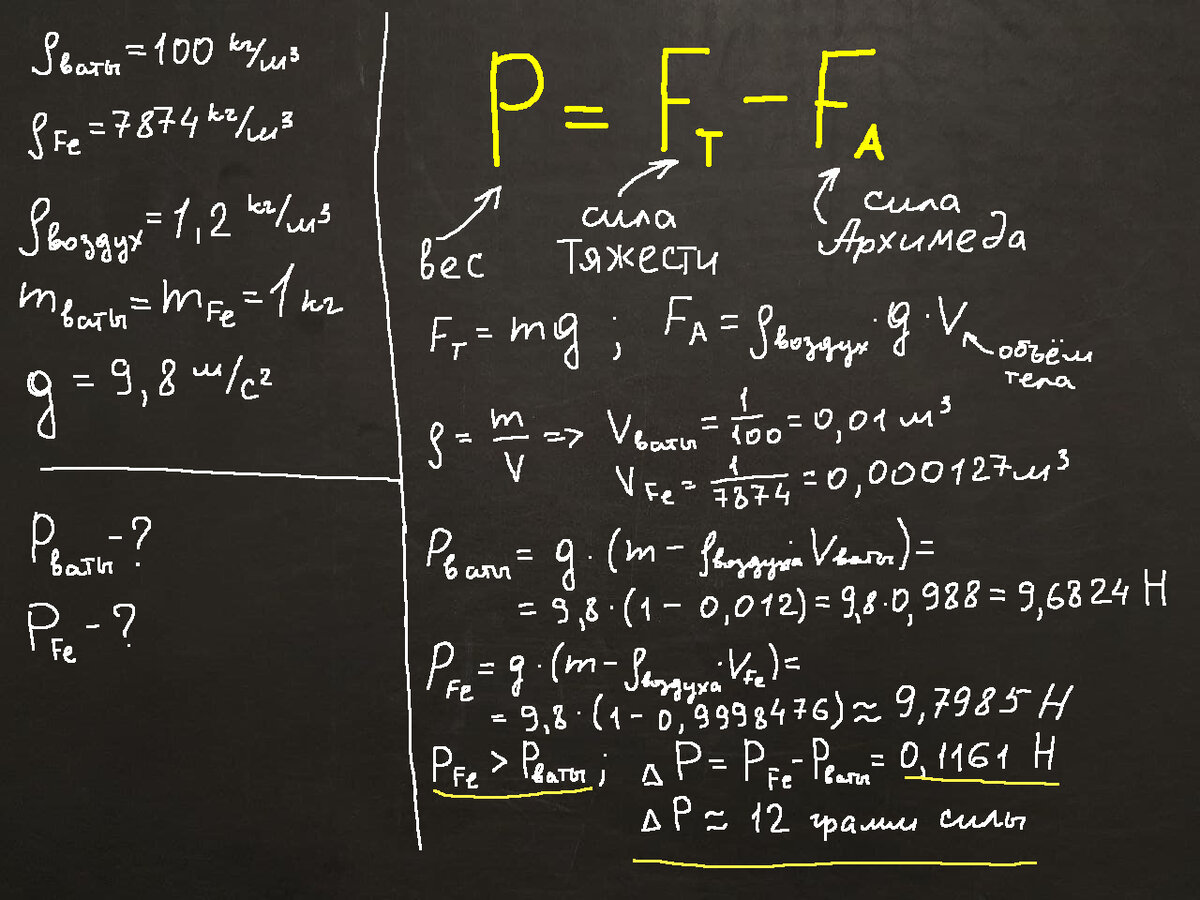 ρваты = 100 кг/м³
ρFe = 7874 кг/м³
ρвоздух = 1,2 кг/м³
mваты = mFe = 1 кг
g = 9,8 м/с²
Pваты - ?
PFe - ?
P = FТ - FА
вес
сила
Тяжести
сила
Архимеда
FТ = mg ; FА = ρвоздух · g · V
объём
тела
ρ = m/V => Vваты = 1/100 = 0,01 м³
VFe = 1/7874 = 0,000127 м³
Pваты = g · (m - ρвоздуха · Vваты) =
= 9,8 · (1 - 0,012) = 9,8 · 0,988 = 9,6824 Н
PFe = g · (m - ρвоздуха · VFe) =
= 9,8 · (1 - 0,9998476) ≈ 9,7985 Н
PFe > Pваты ; Δ P = PFe - Pваты = 0,1161 Н
Δ P ≈ 12 грамм силы